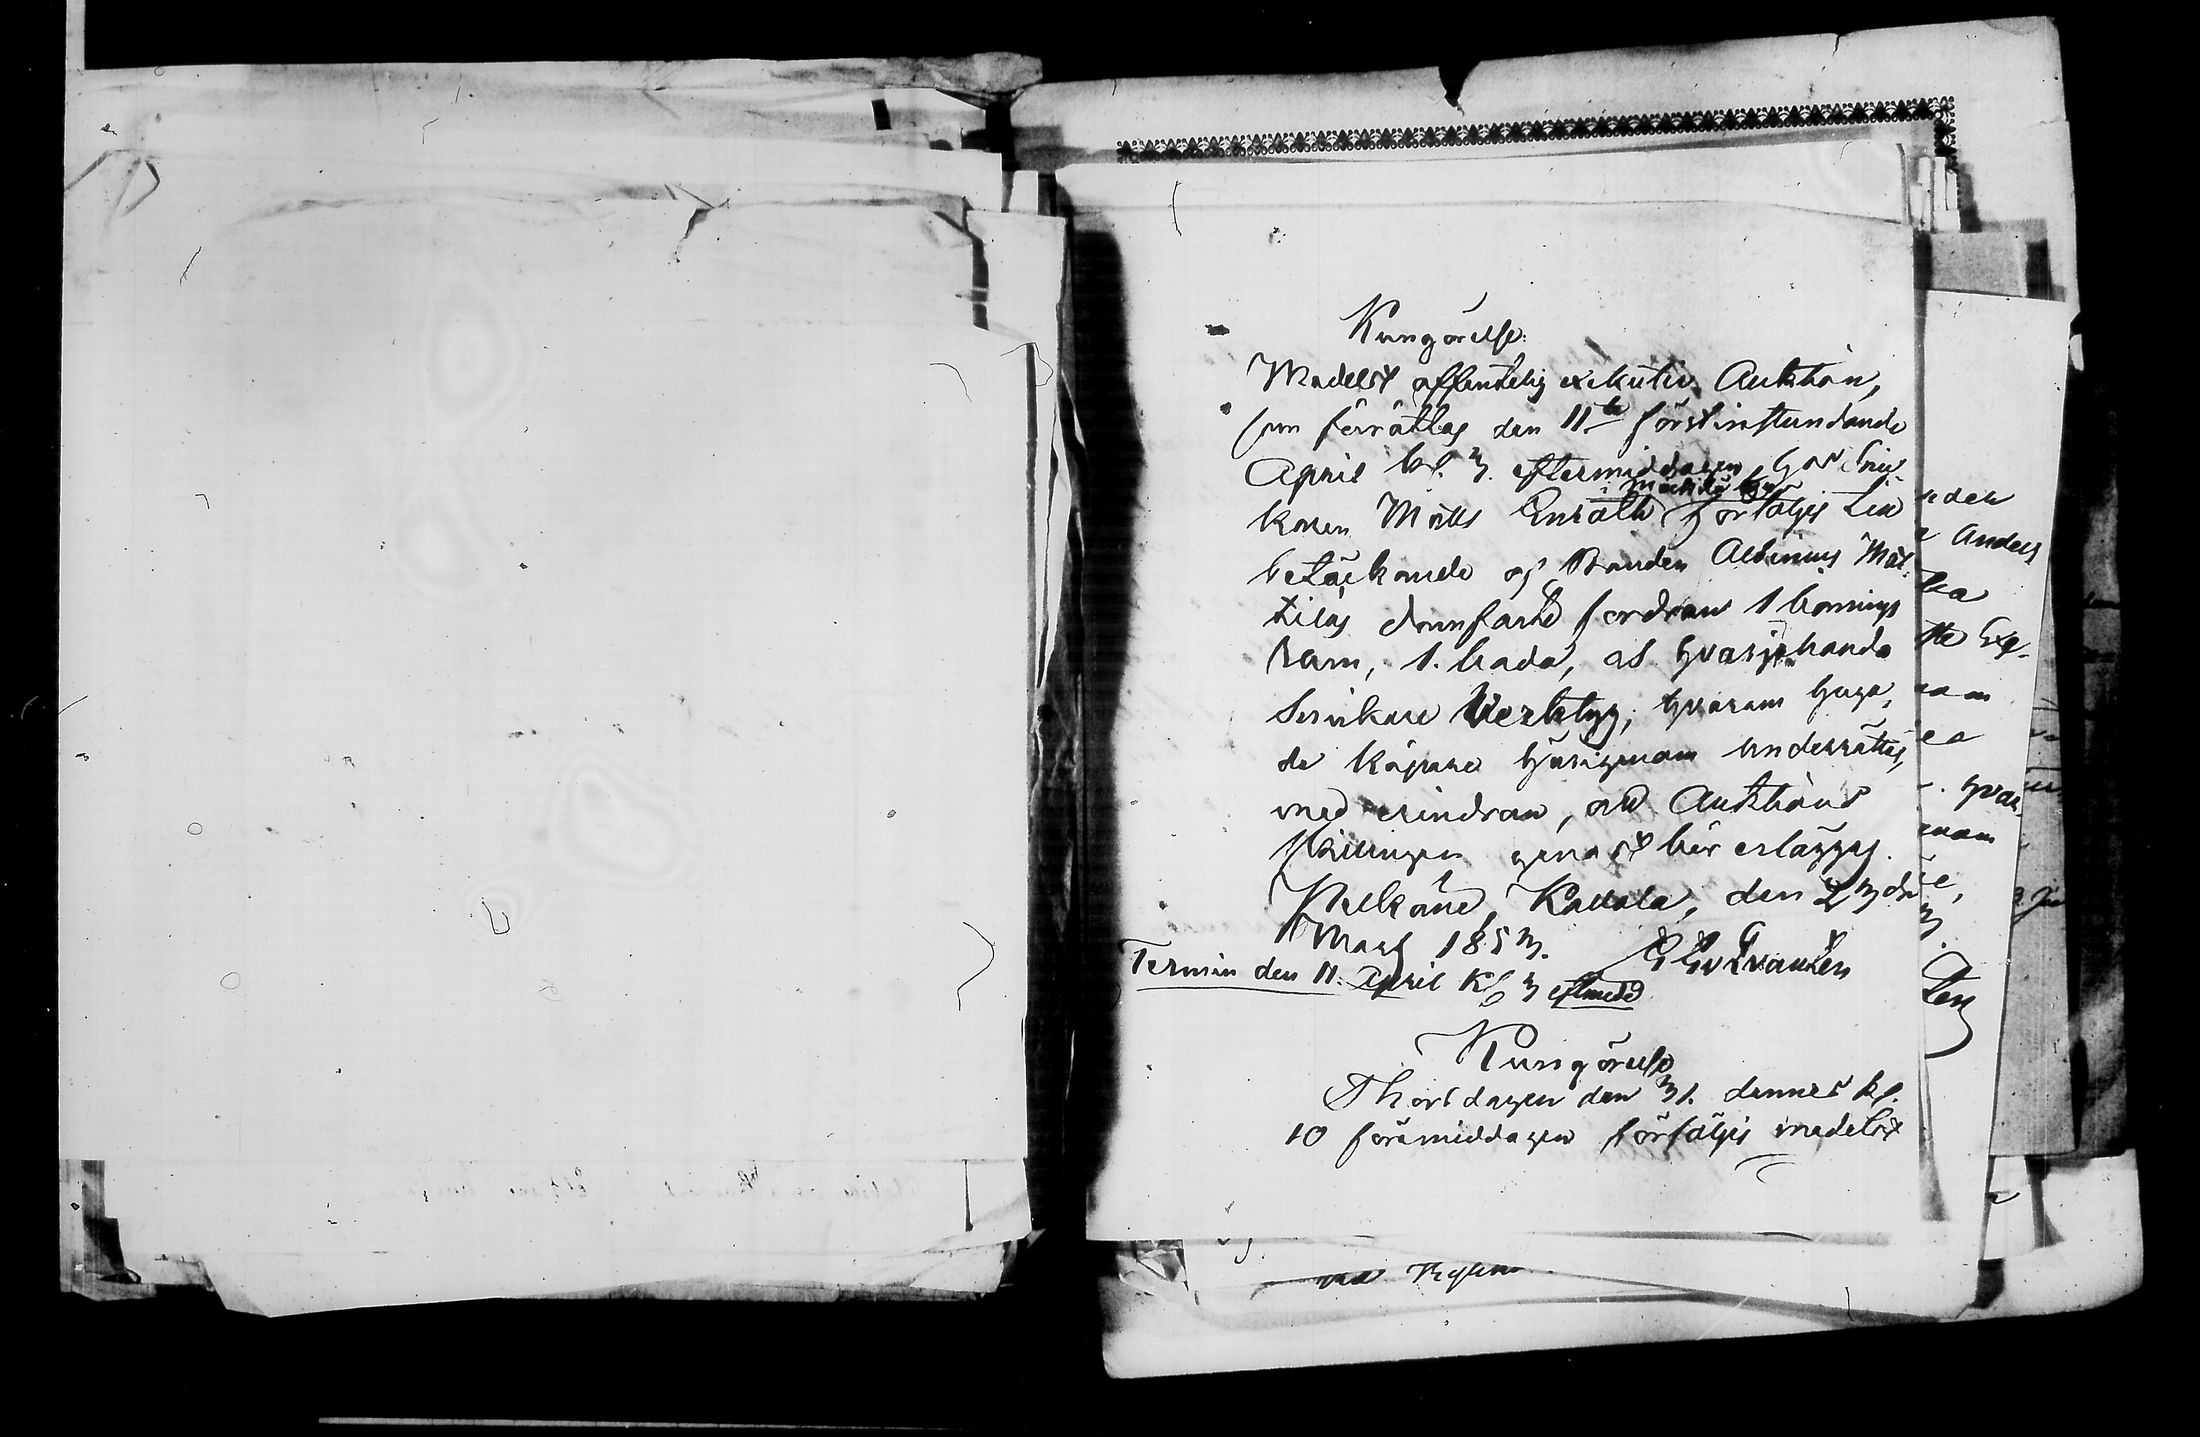 Kungörelse.
Medelst offentelig exekutiv Auktion,
som förrättas den 11te förstinstundande
April kl. 3. eftermiddagen hos Snic
karen Matts Enroth försäljes till
betäckande af Bonden Albinus Mat-
tilas domfaste fordran 1 bonings
ram, 1. lada, och hvarjehanda
Snickare Verktyg; hvarom huga,
de köpare härigenom underrättas,
med erindran, att Auktions
skillingen genast bör erläggas.
Pelkäne, Kallala, den 23dn
Mars 1853.
Termin den 11. April Kl 3 eftmidd
Kungörelse
Thorsdagen den 31. dennes kl.
10 förmiddagen försäljes medelst
Anders
hvar